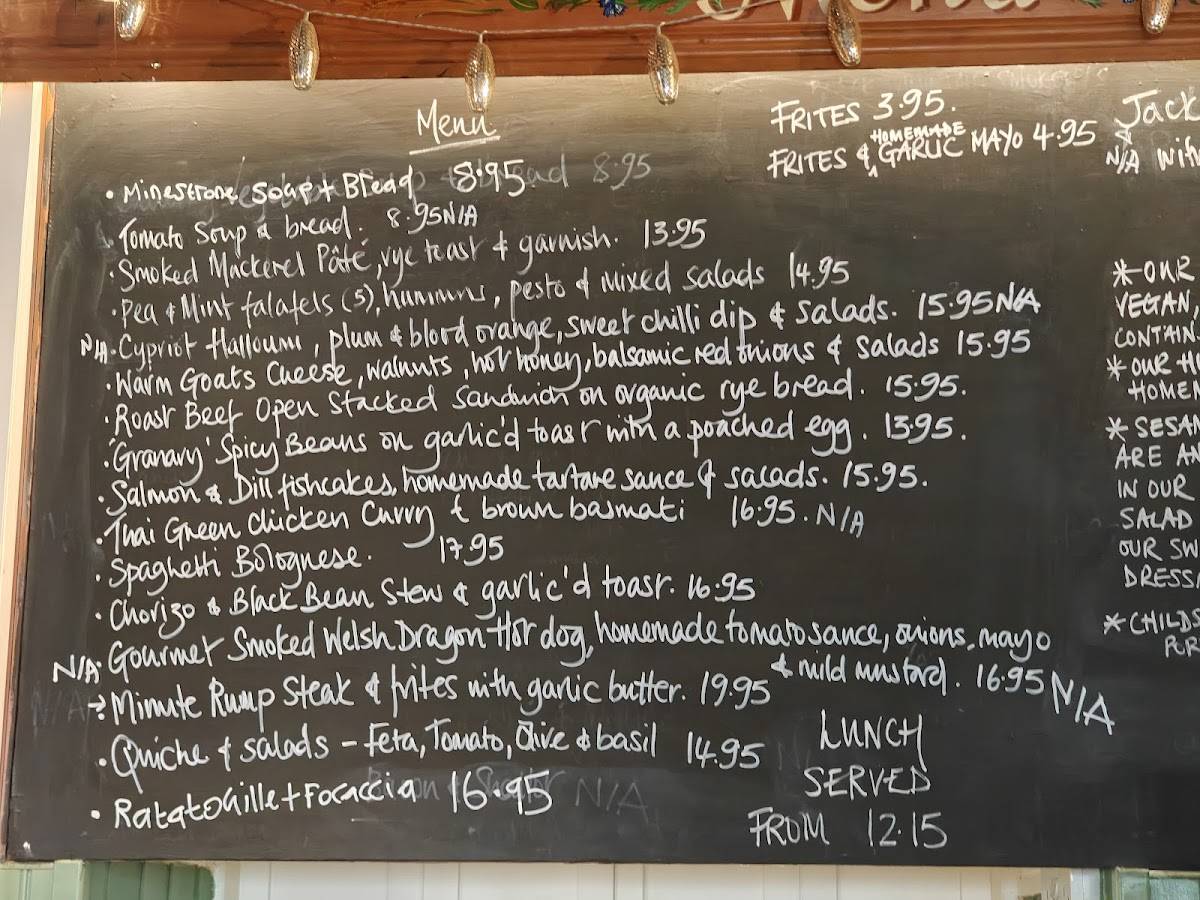 Menu
• Minestrone Soup + Bread 8.95
• Tomato Soup & bread. 8.95 N/A
• Smoked Mackerel Pâté, rye toast & garnish. 13.95
• Pea & Mint falafels (5), hummus, pesto & mixed salads 14.95
N/A • Cypriot Halloumi, plum & blood orange, sweet chilli dip & salads. 15.95 N/A
• Warm Goats Cheese, walnuts, hot honey, balsamic red onions & salads 15.95
• Roast Beef Open Stacked Sandwich on organic rye bread. 15.95.
• 'Granary' Spicy Beans on garlic'd toast with a poached egg. 13.95.
• Salmon & Dill fishcakes, homemade tartare sauce & salads. 15.95.
• Thai Green Chicken Curry & brown basmati 16.95. N/A
• Spaghetti Bolognese. 17.95
• Chorizo & Black Bean Stew & garlic'd toast. 16.95
N/A • Gourmet Smoked Welsh Dragon Hot dog, homemade tomato sauce, onions, mayo
& mild mustard. 16.95 N/A
→ Minute Rump Steak & frites with garlic butter. 19.95
• Quiche & salads – Feta, Tomato, Olive & basil 14.95
• Ratatouille + Focaccia 16.95
LUNCH
SERVED
FROM 12.15
FRITES 3.95.
HOMEMADE
FRITES & GARLIC MAYO 4.95
Jack
N/A with
* OUR
VEGAN,
CONTAIN
* OUR H
HOMEM
* SESAM
ARE AN
IN OUR
SALAD
OUR SW
DRESS
* CHILDS
POR